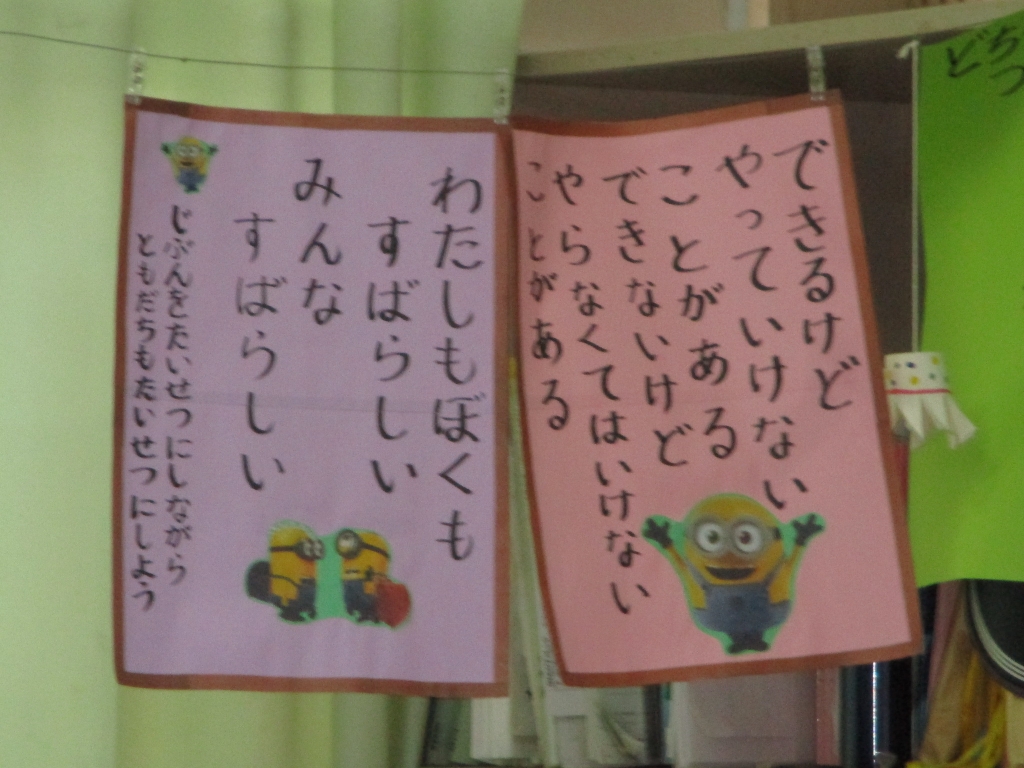 できるけど
やっていけない
ことがある
できないけど
やらなくてはいけない
ことがある
わたしもぼくも
すばらしい
みんな
すばらしい
じぶんをたいせつにしながら
ともだちもたいせつにしよう
どち
つ